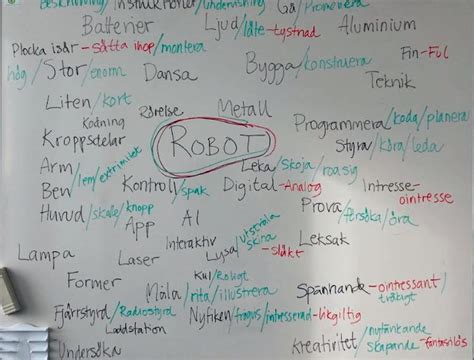 Beskrivning/Instruktioner/undervisning Gå/Promenera
Batterier Ljud/låte-tystnad Aluminium
Plocka isär-sätta ihop/montera Fin-Ful
hög/Stor/enorm Dansa Bygga/konstruera Teknik
Liten/kort Rörelse Metall
Kodning Programmera/koda/planera
Kroppsdelar ROBOT Styra/köra/leda
Arm/lem/extremitet Leka/skoja/roa sig
Ben Kontroll/spak Digital-Analog Intresse-ointresse
Huvud/skalle/knopp App AI Prova/försöka/öva
Interaktiv Lysa/utstråla/skina-släkt Leksak
Lampa Laser
Former Kul/Roligt
Måla/rita/illustrera Spännande-ointressant/tråkigt
Fjärrstyrd/Radiostyrd Nyfiken/frågvis/intresserad-likgiltig
Laddstation
Undersöka Kreativitet/nytänkande/skapande-fantasilös